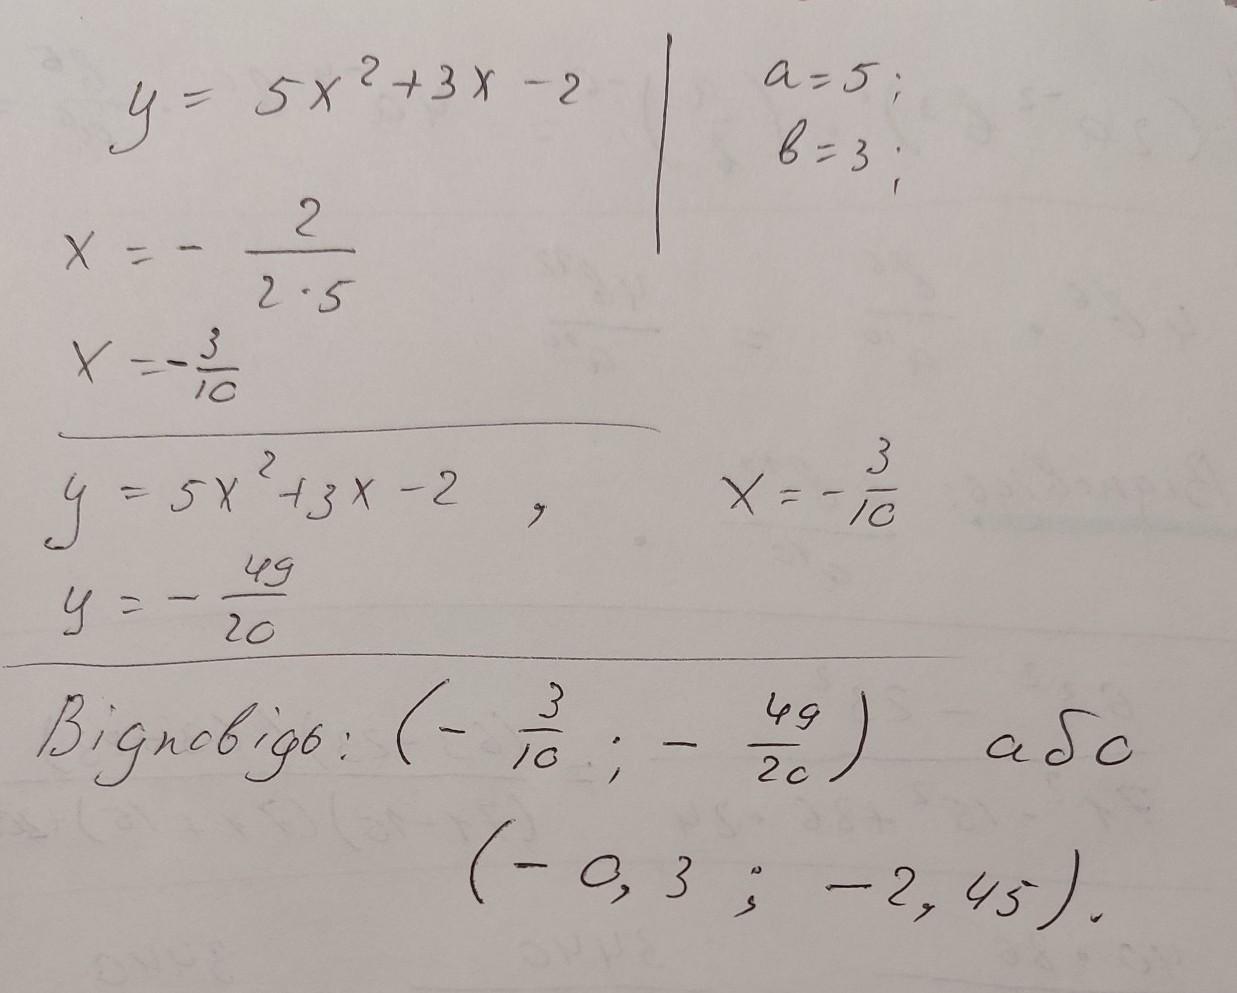 y = 5x² + 3x - 2
a = 5;
b = 3;
x = - 2/(2·5)
x = - 3/10
y = 5x² + 3x - 2 , x = - 3/10
y = - 49/20
Відповідь: (- 3/10 ; - 49/20) або
(- 0,3 ; - 2,45).